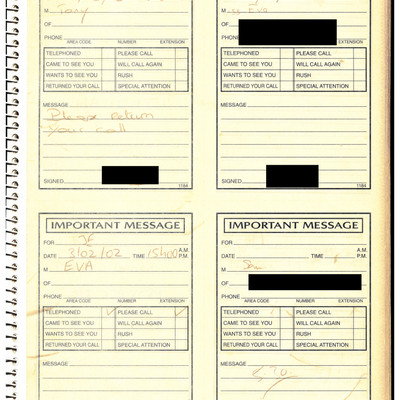 M Tony
M Eva
OF
PHONE
AREA CODE NUMBER EXTENSION
PHONE
AREA CODE NUMBER EXTENSION
TELEPHONED PLEASE CALL
CAME TO SEE YOU WILL CALL AGAIN
WANTS TO SEE YOU RUSH
RETURNED YOUR CALL SPECIAL ATTENTION
TELEPHONED PLEASE CALL
CAME TO SEE YOU WILL CALL AGAIN
WANTS TO SEE YOU RUSH
RETURNED YOUR CALL SPECIAL ATTENTION
MESSAGE
Please return
your call
MESSAGE
SIGNED
1184
SIGNED
1184
IMPORTANT MESSAGE
FOR JE
DATE 3/02/02 TIME 15h00 A.M.
P.M.
M EVA
OF
PHONE
AREA CODE NUMBER EXTENSION
TELEPHONED PLEASE CALL
CAME TO SEE YOU WILL CALL AGAIN
WANTS TO SEE YOU RUSH
RETURNED YOUR CALL SPECIAL ATTENTION
MESSAGE
IMPORTANT MESSAGE
FOR
DATE TIME A.M.
P.M.
M
OF
PHONE
AREA CODE NUMBER EXTENSION
TELEPHONED PLEASE CALL
CAME TO SEE YOU WILL CALL AGAIN
WANTS TO SEE YOU RUSH
RETURNED YOUR CALL SPECIAL ATTENTION
MESSAGE